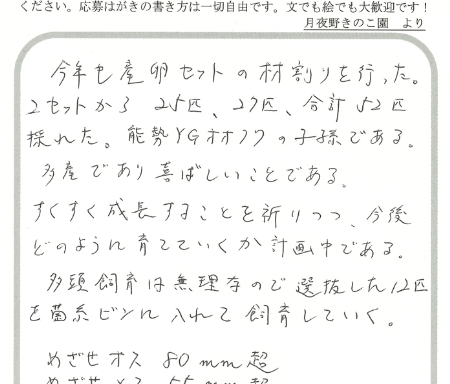 ください。応募はがきの書き方は一切自由です。文でも絵でも大歓迎です!
月夜野きのこ園 より
今年も産卵セットの材割りを行った。
2セットから 25匹、27匹、合計52匹
採れた。能勢YGオオクワの子孫である。
多産であり喜ばしいことである。
すくすく成長することを祈りつつ、今後
どのように育てていくか計画中である。
多頭飼育は無理なので選抜した12匹
を菌糸ビンに入れて飼育していく。
めざせオス 80mm超
めざせメス 55mm超